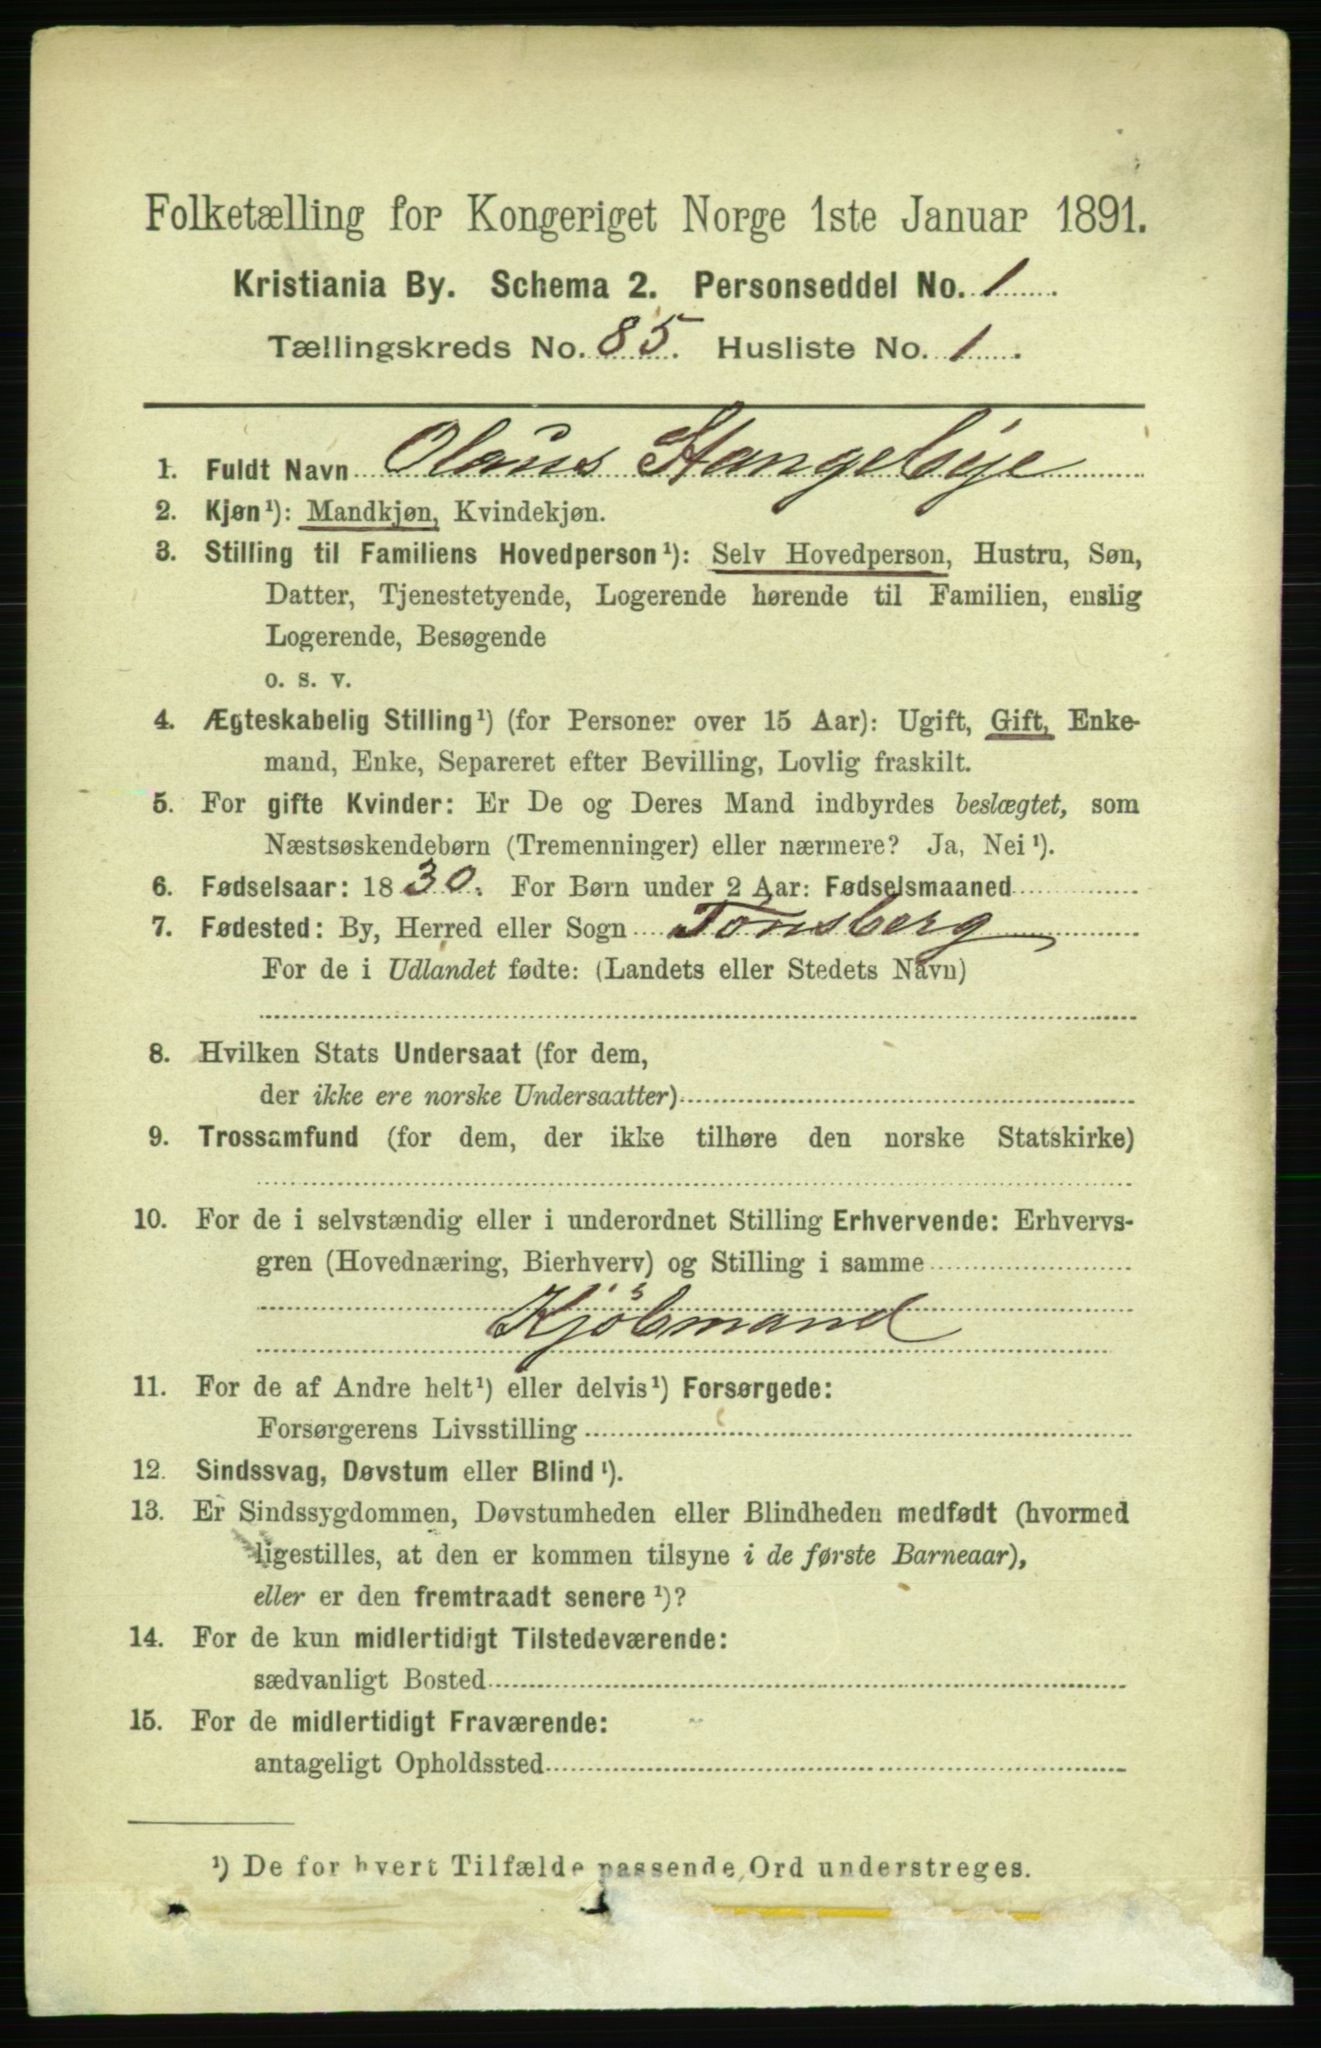 Folketælling for Kongeriget Norge 1ste Januar 1891.
Kristiania By. Schema 2. Personseddel No. 1
Tællingskreds No. 85. Husliste No. 1.
1. Fuldt Navn Olaus Stangebye
2. Kjøn¹): Mandkjøn, Kvindekjøn.
3. Stilling til Familiens Hovedperson¹): Selv Hovedperson, Hustru, Søn,
Datter, Tjenestetyende, Logerende hørende til Familien, enslig
Logerende, Besøgende
o. s. v.
4. Ægteskabelig Stilling¹) (for Personer over 15 Aar): Ugift, Gift, Enke-
mand, Enke, Separeret efter Bevilling, Lovlig fraskilt.
5. For gifte Kvinder: Er De og Deres Mand indbyrdes beslægtet, som
Næstsøskendebørn (Tremenninger) eller nærmere? Ja, Nei¹).
6. Fødselsaar: 1830. For Børn under 2 Aar: Fødselsmaaned
7. Fødested: By, Herred eller Sogn Tønsberg
For de i Udlandet fødte: (Landets eller Stedets Navn)
8. Hvilken Stats Undersaat (for dem,
der ikke ere norske Undersaatter)
9. Trossamfund (for dem, der ikke tilhøre den norske Statskirke)
10. For de i selvstændig eller i underordnet Stilling Erhvervende: Erhvervs-
gren (Hovednæring, Bierhverv) og Stilling i samme
Kjöbmand
11. For de af Andre helt¹) eller delvis¹) Forsørgede:
Forsørgerens Livsstilling
12. Sindssvag, Døvstum eller Blind¹).
13. Er Sindssygdommen, Døvstumheden eller Blindheden medfødt (hvormed
ligestilles, at den er kommen tilsyne i de første Barneaar),
eller er den fremtraadt senere¹)?
14. For de kun midlertidigt Tilstedeværende:
sædvanligt Bosted
15. For de midlertidigt Fraværende:
antageligt Opholdssted
¹) De for hvert Tilfælde passende Ord understreges.